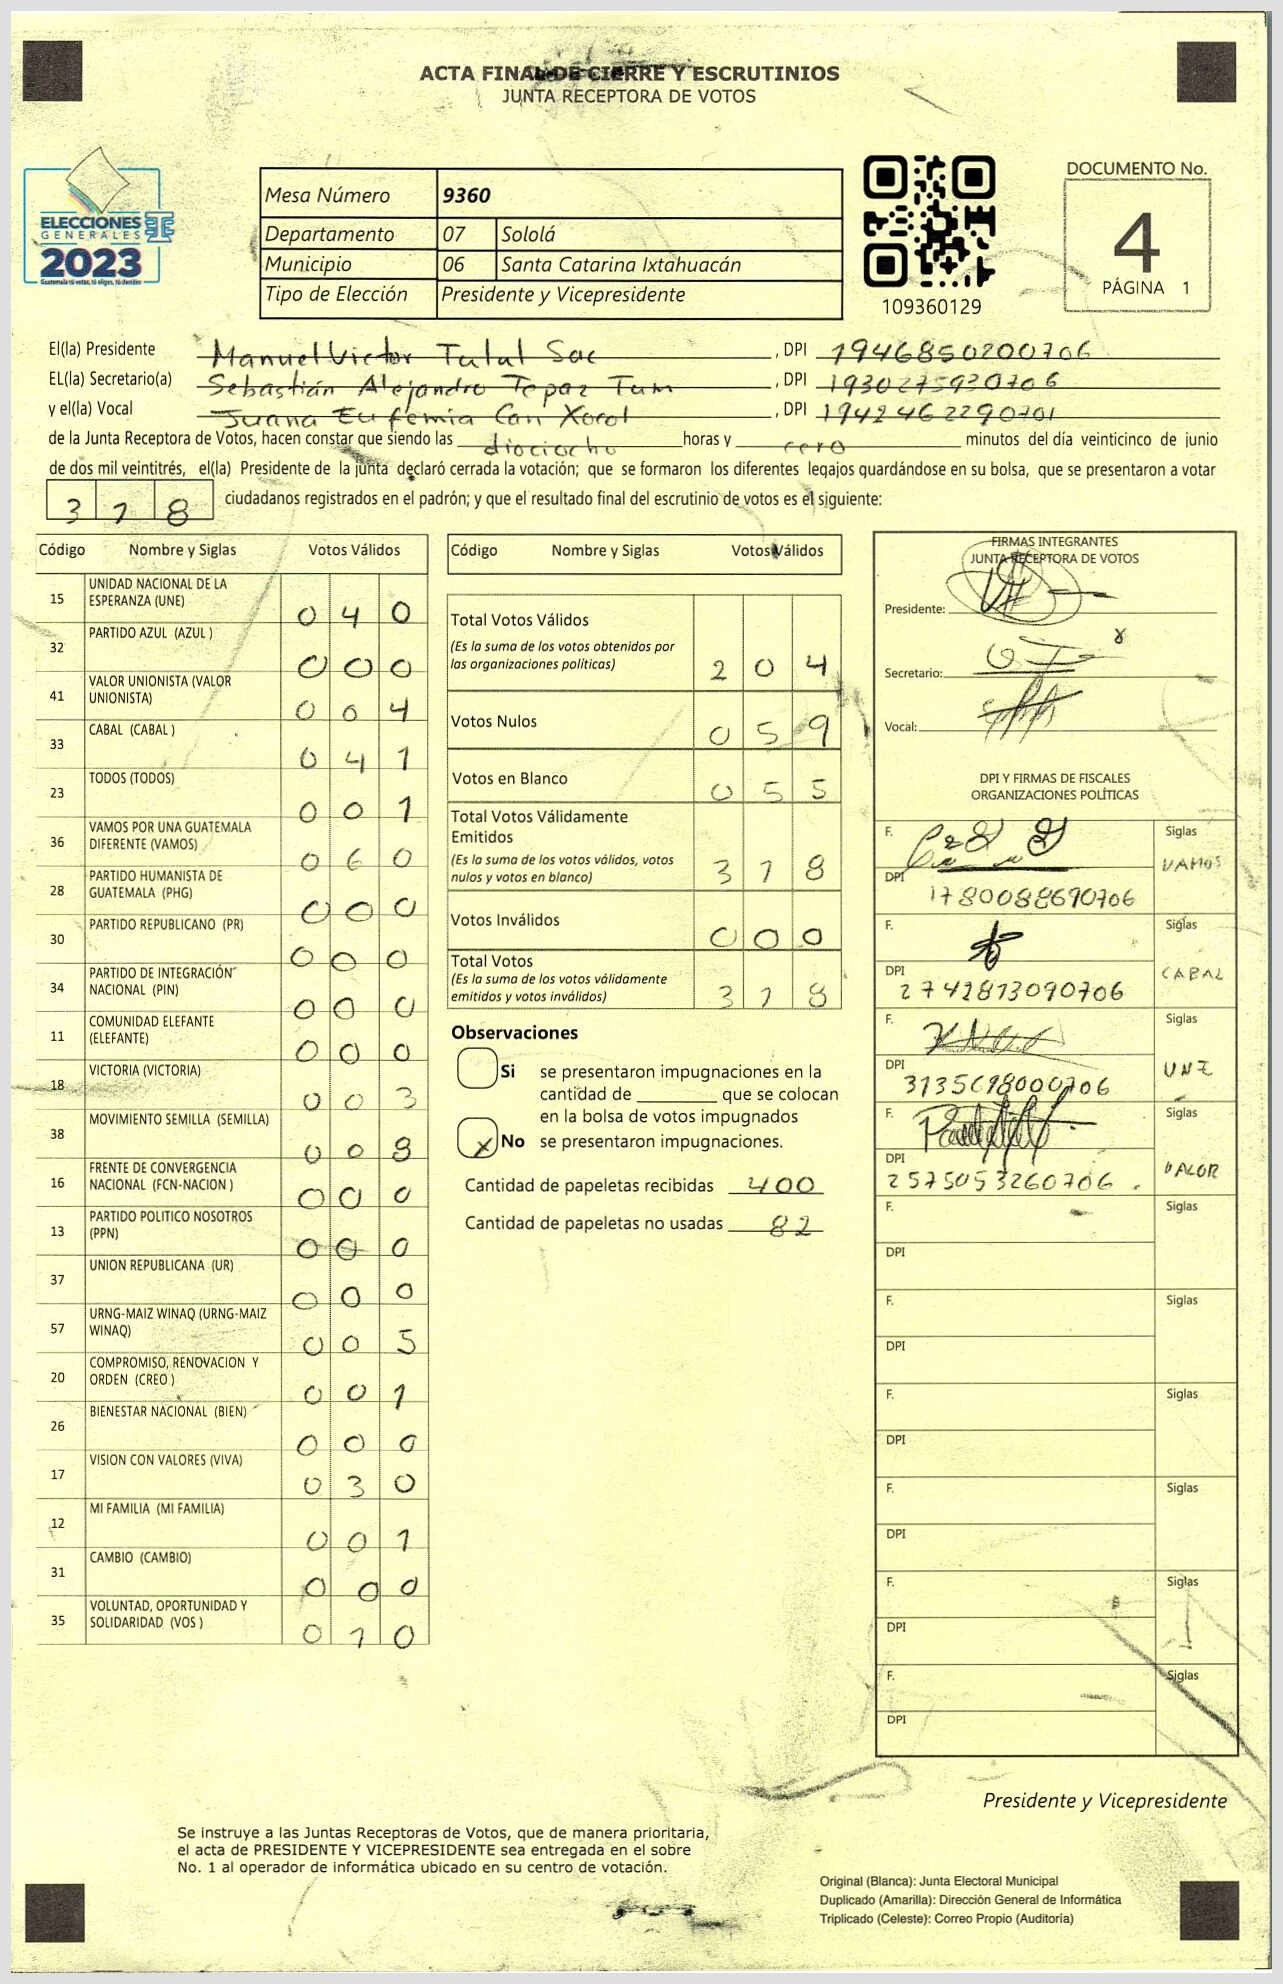 ACTA FINAL DE CIERRE Y ESCRUTINIOS
JUNTA RECEPTORA DE VOTOS
ELECCIONES
GENERALES
2023
Guatemala tú votas, tú eliges, tú decides
Mesa Número 9360
Departamento 07 Sololá
Municipio 06 Santa Catarina Ixtahuacán
Tipo de Elección Presidente y Vicepresidente
109360129
DOCUMENTO No.
4
PÁGINA 1
El(la) Presidente Manuel Victor Tulul Sac, DPI 1946850200706
EL(la) Secretario(a) Sebastián Alejandro Tepaz Tum, DPI 1930275930706
y el(la) Vocal Juana Eufemia Can Xocol, DPI 1942462290701
de la Junta Receptora de Votos, hacen constar que siendo las diociocho horas y cero minutos del día veinticinco de junio
de dos mil veintitrés, el(la) Presidente de la junta declaró cerrada la votación; que se formaron los diferentes legajos guardándose en su bolsa, que se presentaron a votar
318 ciudadanos registrados en el padrón; y que el resultado final del escrutinio de votos es el siguiente:
Código Nombre y Siglas Votos Válidos
15 UNIDAD NACIONAL DE LA ESPERANZA (UNE) 040
32 PARTIDO AZUL (AZUL ) 000
41 VALOR UNIONISTA (VALOR UNIONISTA) 004
33 CABAL (CABAL ) 041
23 TODOS (TODOS) 001
36 VAMOS POR UNA GUATEMALA DIFERENTE (VAMOS) 060
28 PARTIDO HUMANISTA DE GUATEMALA (PHG) 000
30 PARTIDO REPUBLICANO (PR) 000
34 PARTIDO DE INTEGRACIÓN NACIONAL (PIN) 000
11 COMUNIDAD ELEFANTE (ELEFANTE) 000
18 VICTORIA (VICTORIA) 003
38 MOVIMIENTO SEMILLA (SEMILLA) 008
16 FRENTE DE CONVERGENCIA NACIONAL (FCN-NACION ) 000
13 PARTIDO POLITICO NOSOTROS (PPN) 000
37 UNION REPUBLICANA (UR) 000
57 URNG-MAIZ WINAQ (URNG-MAIZ WINAQ) 005
20 COMPROMISO, RENOVACION Y ORDEN (CREO ) 001
26 BIENESTAR NACIONAL (BIEN) 000
17 VISION CON VALORES (VIVA) 030
12 MI FAMILIA (MI FAMILIA) 001
31 CAMBIO (CAMBIO) 000
35 VOLUNTAD, OPORTUNIDAD Y SOLIDARIDAD (VOS ) 010
Código Nombre y Siglas Votos Válidos
Total Votos Válidos 204
(Es la suma de los votos obtenidos por
las organizaciones políticas)
Votos Nulos 059
Votos en Blanco 055
Total Votos Válidamente
Emitidos 318
(Es la suma de los votos válidos, votos
nulos y votos en blanco)
Votos Inválidos 000
Total Votos 318
(Es la suma de los votos válidamente
emitidos y votos inválidos)
Observaciones
Si se presentaron impugnaciones en la
cantidad de ________ que se colocan
en la bolsa de votos impugnados
x No se presentaron impugnaciones.
Cantidad de papeletas recibidas 400
Cantidad de papeletas no usadas 82
FIRMAS INTEGRANTES
JUNTA RECEPTORA DE VOTOS
Presidente:
Secretario:
Vocal:
DPI Y FIRMAS DE FISCALES
ORGANIZACIONES POLÍTICAS
F. Siglas VAMOS
DPI 1780088690706
F. Siglas CABAL
DPI 2742813090706
F. Siglas UNE
DPI 3135698000706
F. Siglas VALOR
DPI 2575053260706
F. Siglas
DPI
F. Siglas
DPI
F. Siglas
DPI
F. Siglas
DPI
F. Siglas
DPI
F. Siglas
DPI
Presidente y Vicepresidente
Se instruye a las Juntas Receptoras de Votos, que de manera prioritaria,
el acta de PRESIDENTE Y VICEPRESIDENTE sea entregada en el sobre
No. 1 al operador de informática ubicado en su centro de votación.
Original (Blanca): Junta Electoral Municipal
Duplicado (Amarilla): Dirección General de Informática
Triplicado (Celeste): Correo Propio (Auditoría)